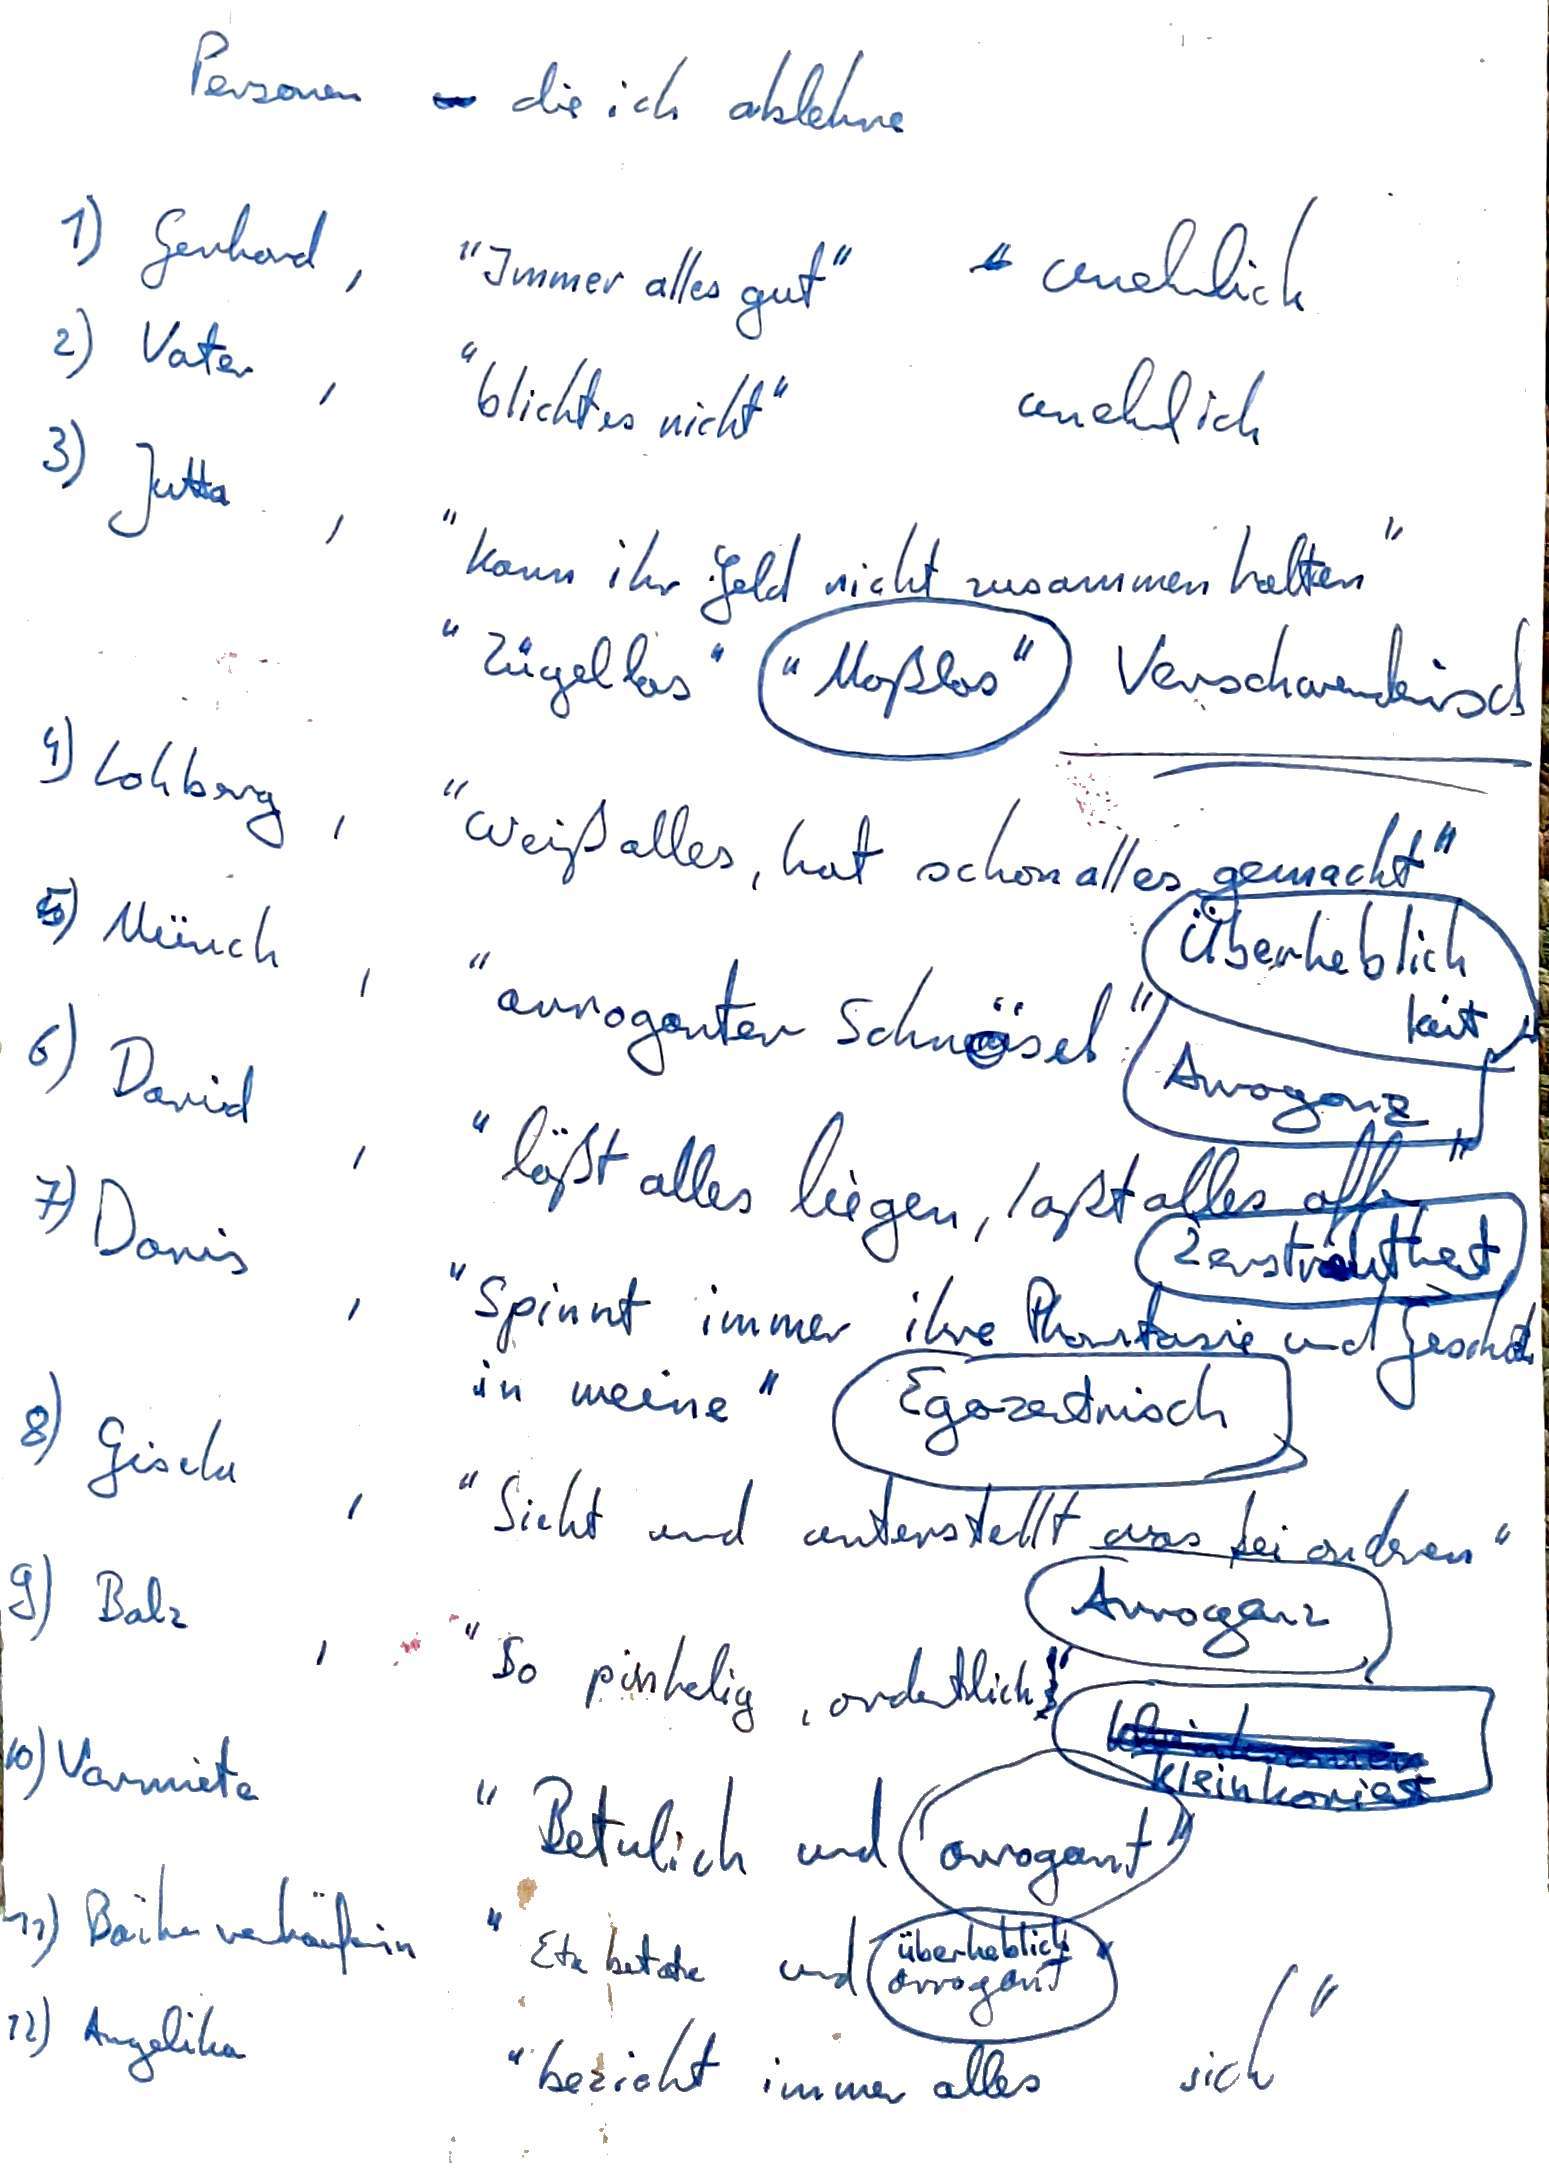 Personen - die ich ablehne
1) Gerhard, "Immer alles gut" unehrlich
2) Vater, " nicht" unehrlich
3) Jutta, "kann ihr Geld nicht zusammen halten"
"Zügellos" "Maßlos" Verschwenderisch
4) Lohberg, "weiß alles, hat schon alles gemacht"
Überheblich
keit
5) Münch, "arroganter Schnösel"
Arroganz
6) David, "läßt alles liegen, laßt alles off"
Zerstreutheit
7) Doris, "Spinnt immer ihre Phantasie und
in meine" Egozentrisch
8) Gisela, "Sieht und unterstellt was bei anderen"
Arroganz
9) Balz, "So pinkelig, ordentlich"
kleinkariert
10) "Betulich und arrogant"
11) Bäckerverkäuferin " und überheblich
arrogant"
12) Angelika "bezieht immer alles sich"